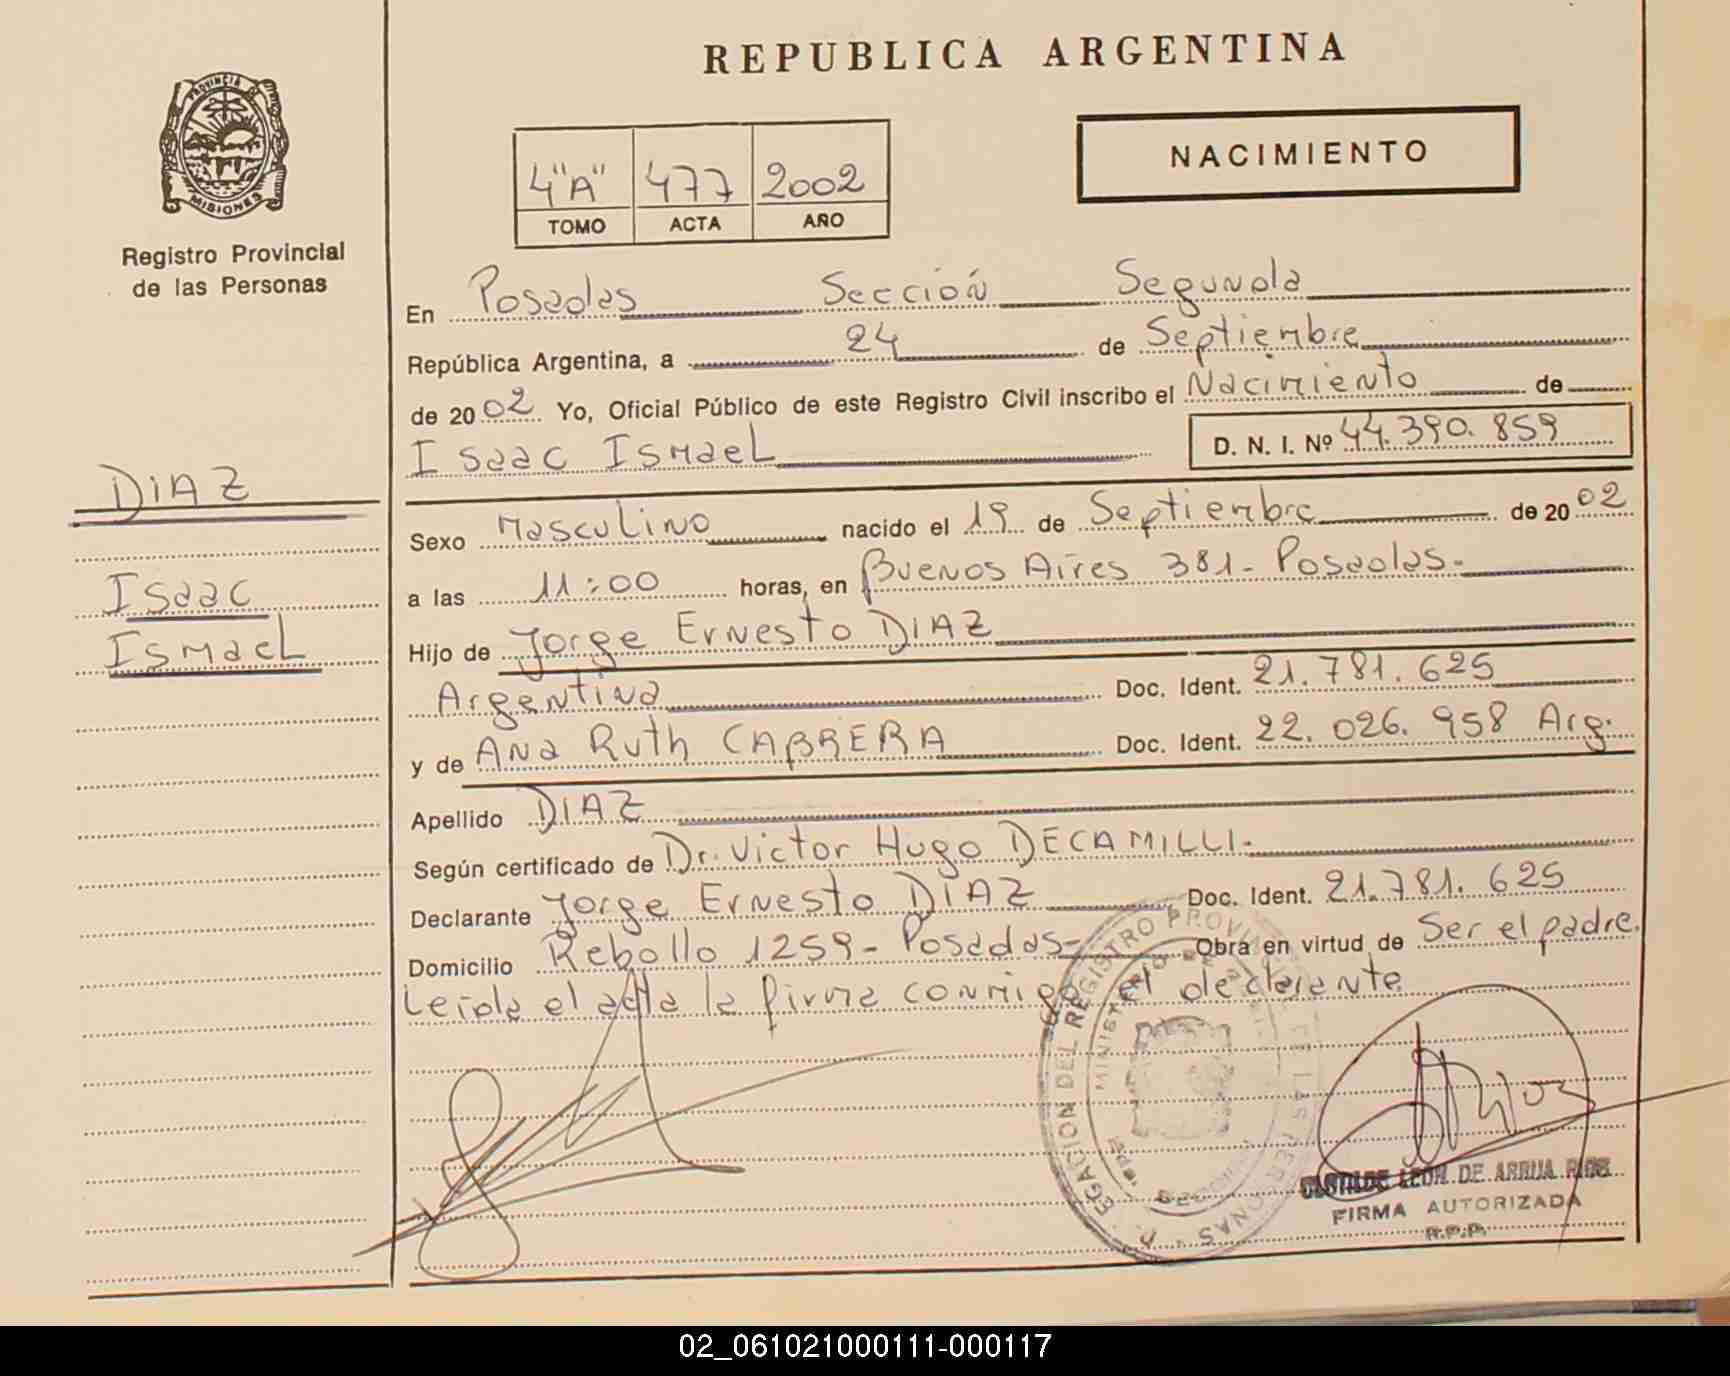 REPUBLICA ARGENTINA
PROVINCIA DE
MISIONES
Registro Provincial
de las Personas
NACIMIENTO
4"A" 477 2002
TOMO ACTA AÑO
En Posadas Sección Segunda
República Argentina, a 24 de Septiembre
de 2002 Yo, Oficial Público de este Registro Civil inscribo el Nacimiento de
Isaac Ismael D. N. I. Nº 44.390.859
DIAZ
Isaac
Ismael
Sexo Masculino nacido el 19 de Septiembre de 2002
a las 11:00 horas, en Buenos Aires 381- Posadas-
Hijo de Jorge Ernesto DIAZ
Argentina Doc. Ident. 21.781.625
y de Ana Ruth CABRERA Doc. Ident. 22.026.958 Arg.
Apellido DIAZ
Según certificado de Dr. Victor Hugo DECAMILLI-
Declarante Jorge Ernesto DIAZ Doc. Ident. 21.781.625
Domicilio Rebollo 1259- Posadas- Obra en virtud de Ser el padre.
Leida el acta la firma conmigo el declarante
DELEGACION DEL REGISTRO PROVINCIAL DE LAS PERSONAS
MINISTERIO DE
LEON DE ARRUA RIOS
FIRMA AUTORIZADA
R.P.P.
02_061021000111-000117